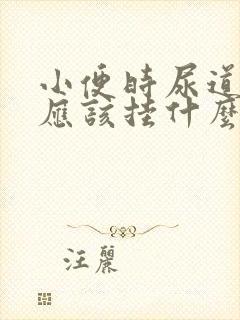 小便時尿道
應該掛什麼
汪麗